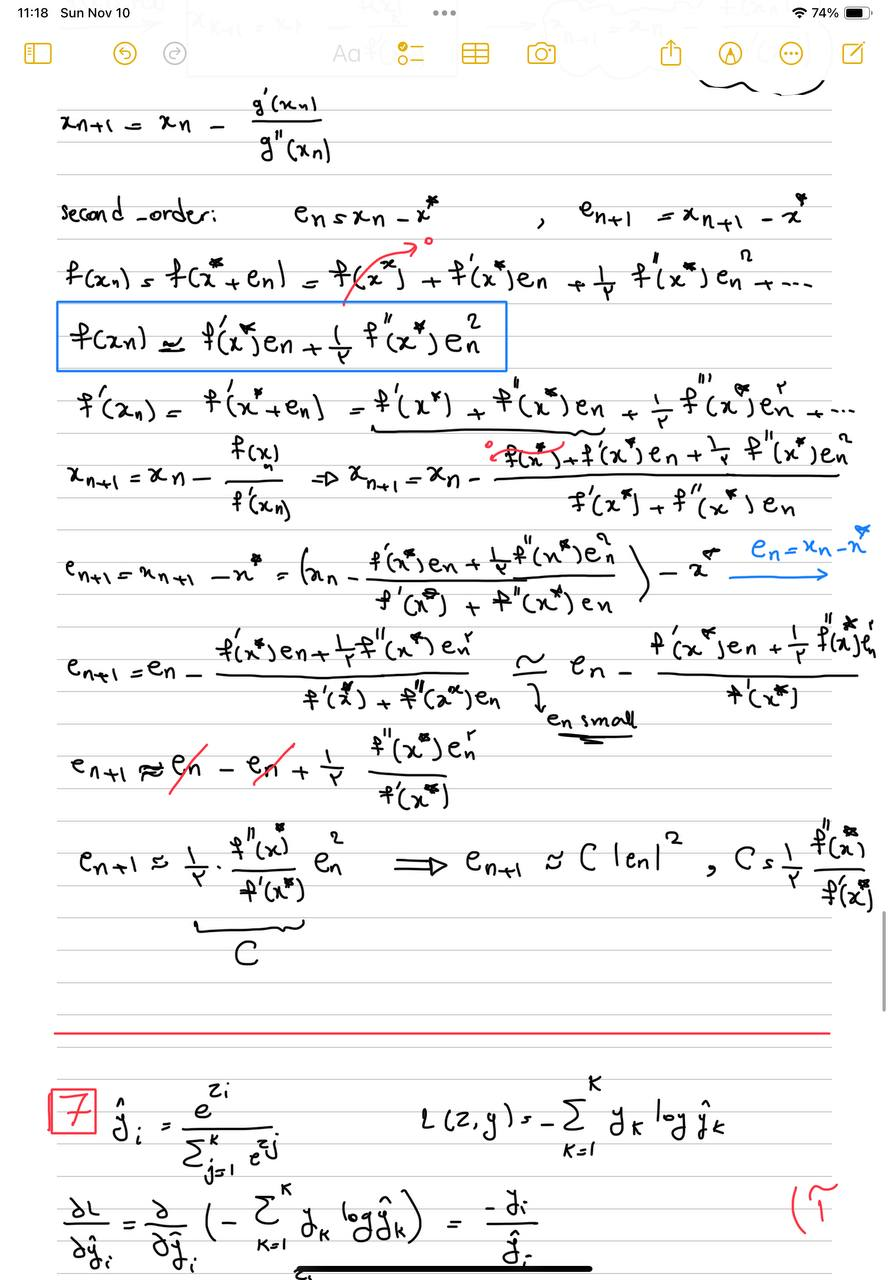 11:18 Sun Nov 10 74%
Aa
xn+1 = xn - g'(xn) / g''(xn)
second-order: en = xn - x* , en+1 = xn+1 - x*
f(xn) = f(x* + en) = f(x*) + f'(x*)en + 1/۲ f''(x*)en² + ... ۰
f(xn) ≃ f'(x*)en + 1/۲ f''(x*)en²
f'(xn) = f'(x*+en) = f'(x*) + f''(x*)en + 1/۲ f'''(x*)en^۲ + ...
xn+1 = xn - f(xn) / f'(xn) ⇒ xn+1 = xn - (f(x*) + f'(x*)en + 1/۲ f''(x*)en²) / (f'(x*) + f''(x*)en) ۰
en+1 = xn+1 - x* = (xn - (f'(x*)en + 1/۲ f''(x*)en²) / (f'(x*) + f''(x*)en)) - x* en = xn - x* →
en+1 = en - (f'(x*)en + 1/۲ f''(x*)en^۲) / (f'(x*) + f''(x*)en) ≃ en - (f'(x*)en + 1/۲ f''(x*)en^۲) / f'(x*)
en small
en+1 ≈ en - en + 1/۲ f''(x*)en^۲ / f'(x*)
en+1 ≈ 1/۲ · f''(x*) / f'(x*) en² ⇒ en+1 ≈ C |en|² , C = 1/۲ f''(x*) / f'(x*)
C
7 ŷi = e^zi / Σ_{j=1}^{K} e^zj L(z,y) = - Σ_{K=1}^{K} yK log ŷK
∂L/∂ŷi = ∂/∂ŷi (- Σ_{K=1}^{K} yK log ŷK) = -yi / ŷi